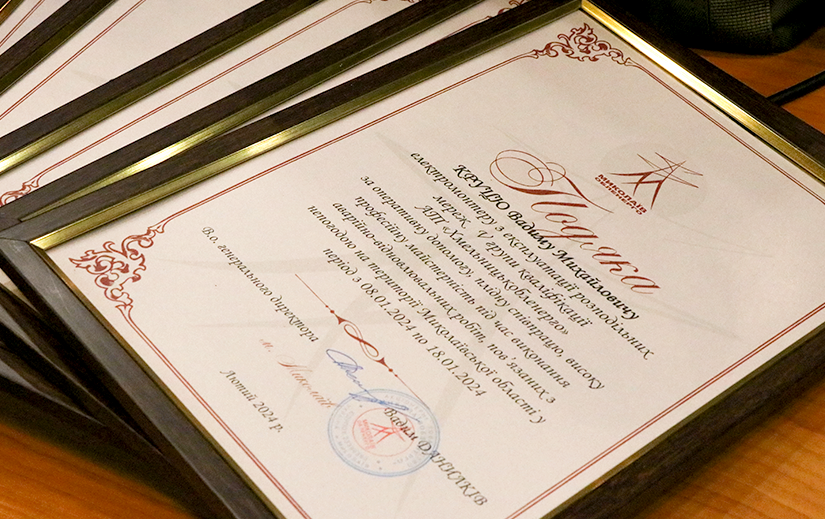 МИКОЛАЇВ
ОБЛЕНЕРГО
Подяка
Вадиму Михайловичу
електромонтеру з експлуатації розподільних
мереж, V групи кваліфікації
АТ «Хмельницькобленерго»
за оперативну допомогу, плідну співпрацю, високу
професійну майстерність під час виконання
аварійно-відновлювальних робіт, пов'язаних з
непогодою на території Миколаївської області у
період з 08.01.2024 по 18.01.2024
В.о. генерального директора
Вадим ДАНИЛКІВ
м. Миколаїв
Лютий 2024 р.